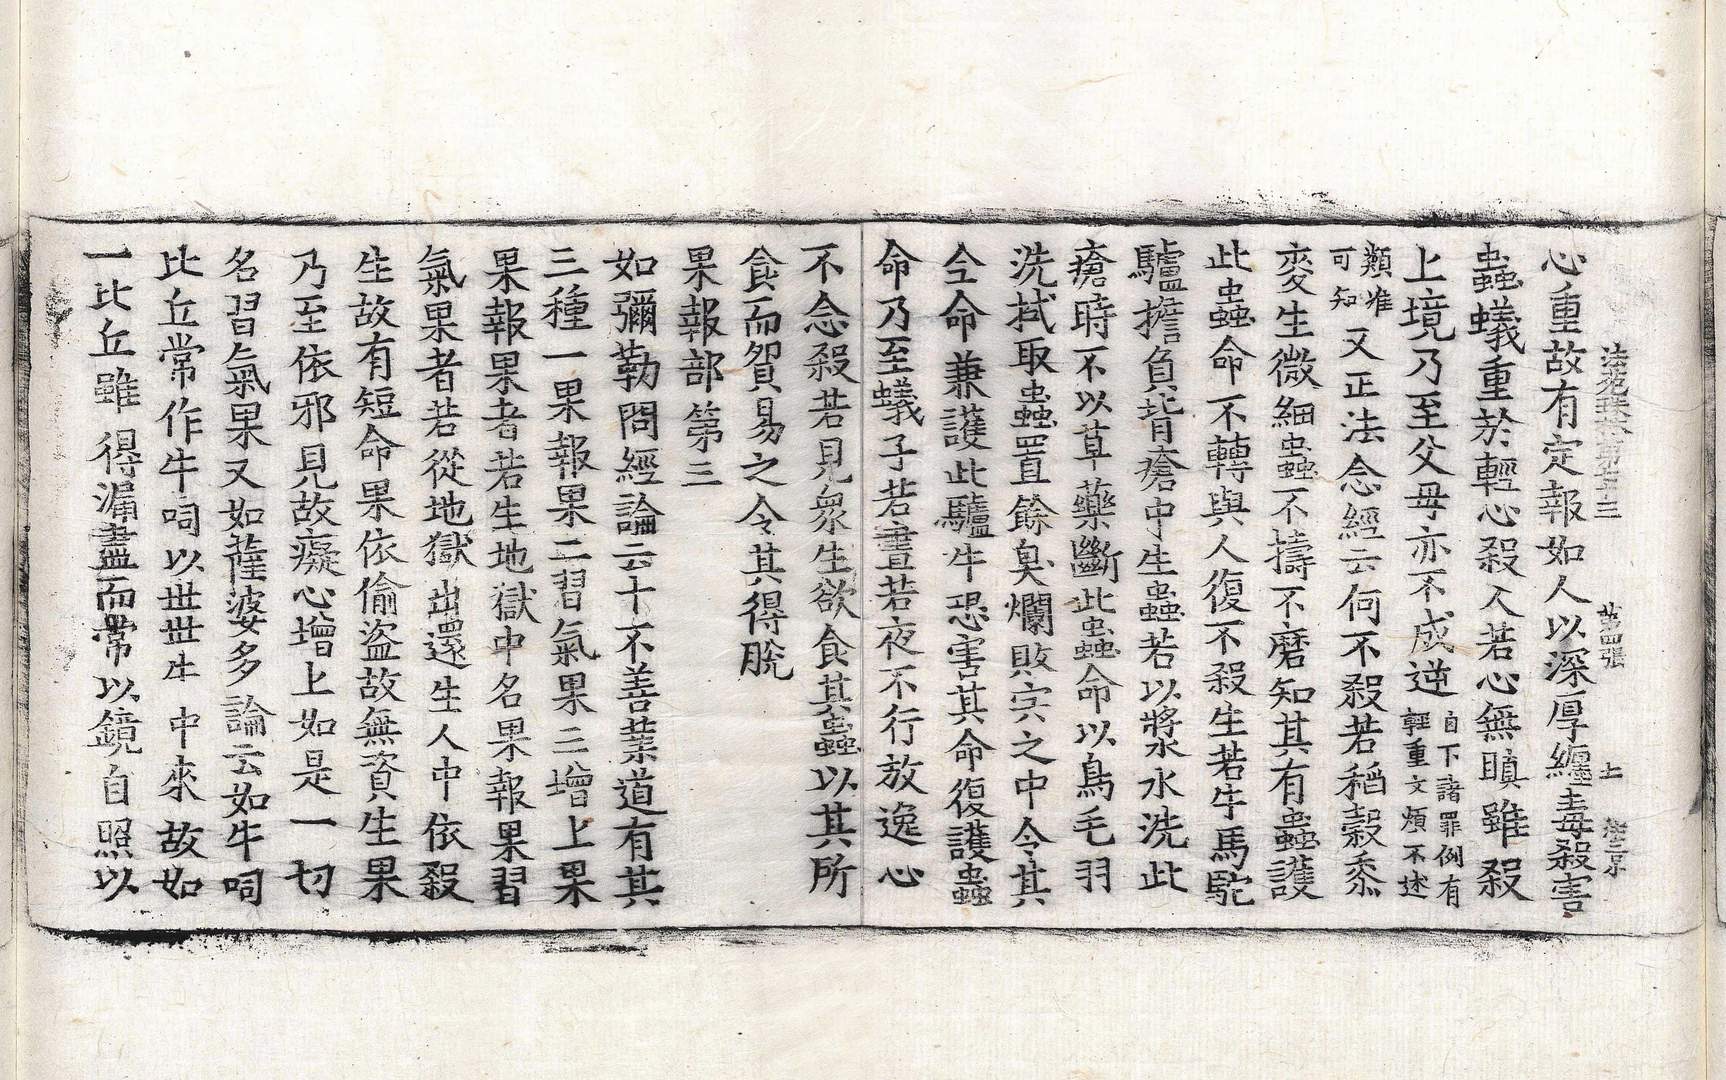 法苑珠林第七十三 第四張 士
心重故有定報如人以深厚纏毒殺害
蟲蟻重於輕心殺人若心無瞋雖殺
上境乃至父母亦不成逆自下諸罪例有輕重文煩不述
類准可知又正法念經云何不殺若稻穀黍
麥生微細蟲不擣不磨知其有蟲護
此蟲命不轉與人復不殺生若牛馬駝
驢擔負背瘡中生蟲若以漿水洗此
瘡時不以草藥斷此蟲命以鳥毛羽
洗拭取蟲置餘臭爛敗宍之中令其
全命兼護此驢牛恐害其命復護蟲
命乃至蟻子若晝若夜不行放逸心
不念殺若見眾生欲食其蟲以其所
食而貿易之令其得脫
果報部第三
如彌勒問經論云十不善業道有其
三種一果報果二習氣果三增上果
果報果者若生地獄中名果報果習
氣果者若從地獄出還生人中依殺
生故有短命果依偷盜故無資生果
乃至依邪見故癡心增上如是一切
名習氣果又如薩婆多論云如牛呞
比丘常作牛呞以世世牛中來故如
一比丘雖得漏盡而常以鏡自照以